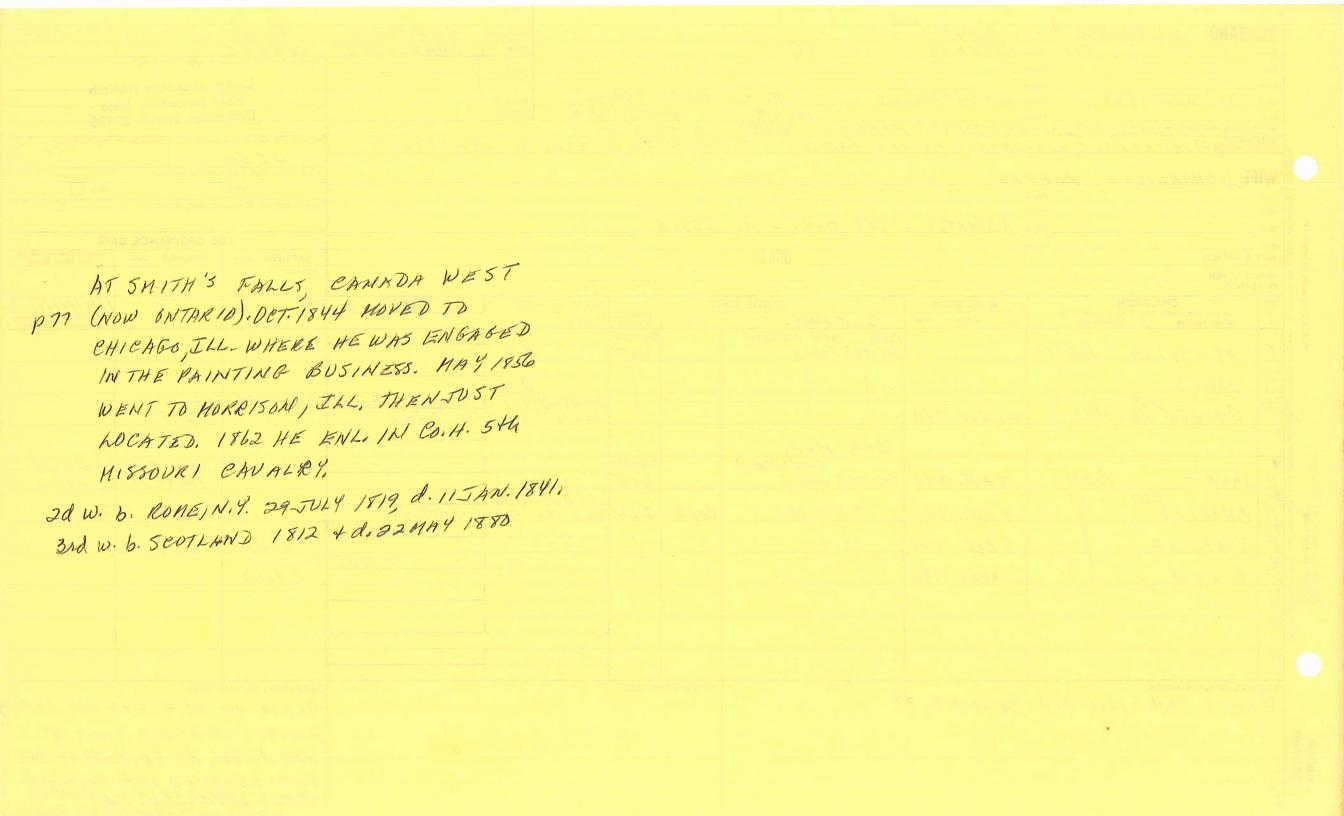 AT SMITH'S FALLS, CANADA WEST
p 77 (NOW ONTARIO). OCT. 1844 MOVED TO
CHICAGO, ILL. WHERE HE WAS ENGAGED
IN THE PAINTING BUSINESS. MAY 1856
WENT TO MORRISON, ILL. THEN JUST
LOCATED. 1862 HE ENL. IN Co. H. 5th
MISSOURI CAVALRY.
2d w. b. ROME, N.Y. 29 JULY 1819, d. 11 JAN. 1841.
3rd w. b. SCOTLAND 1812 + d. 22 MAY 1880